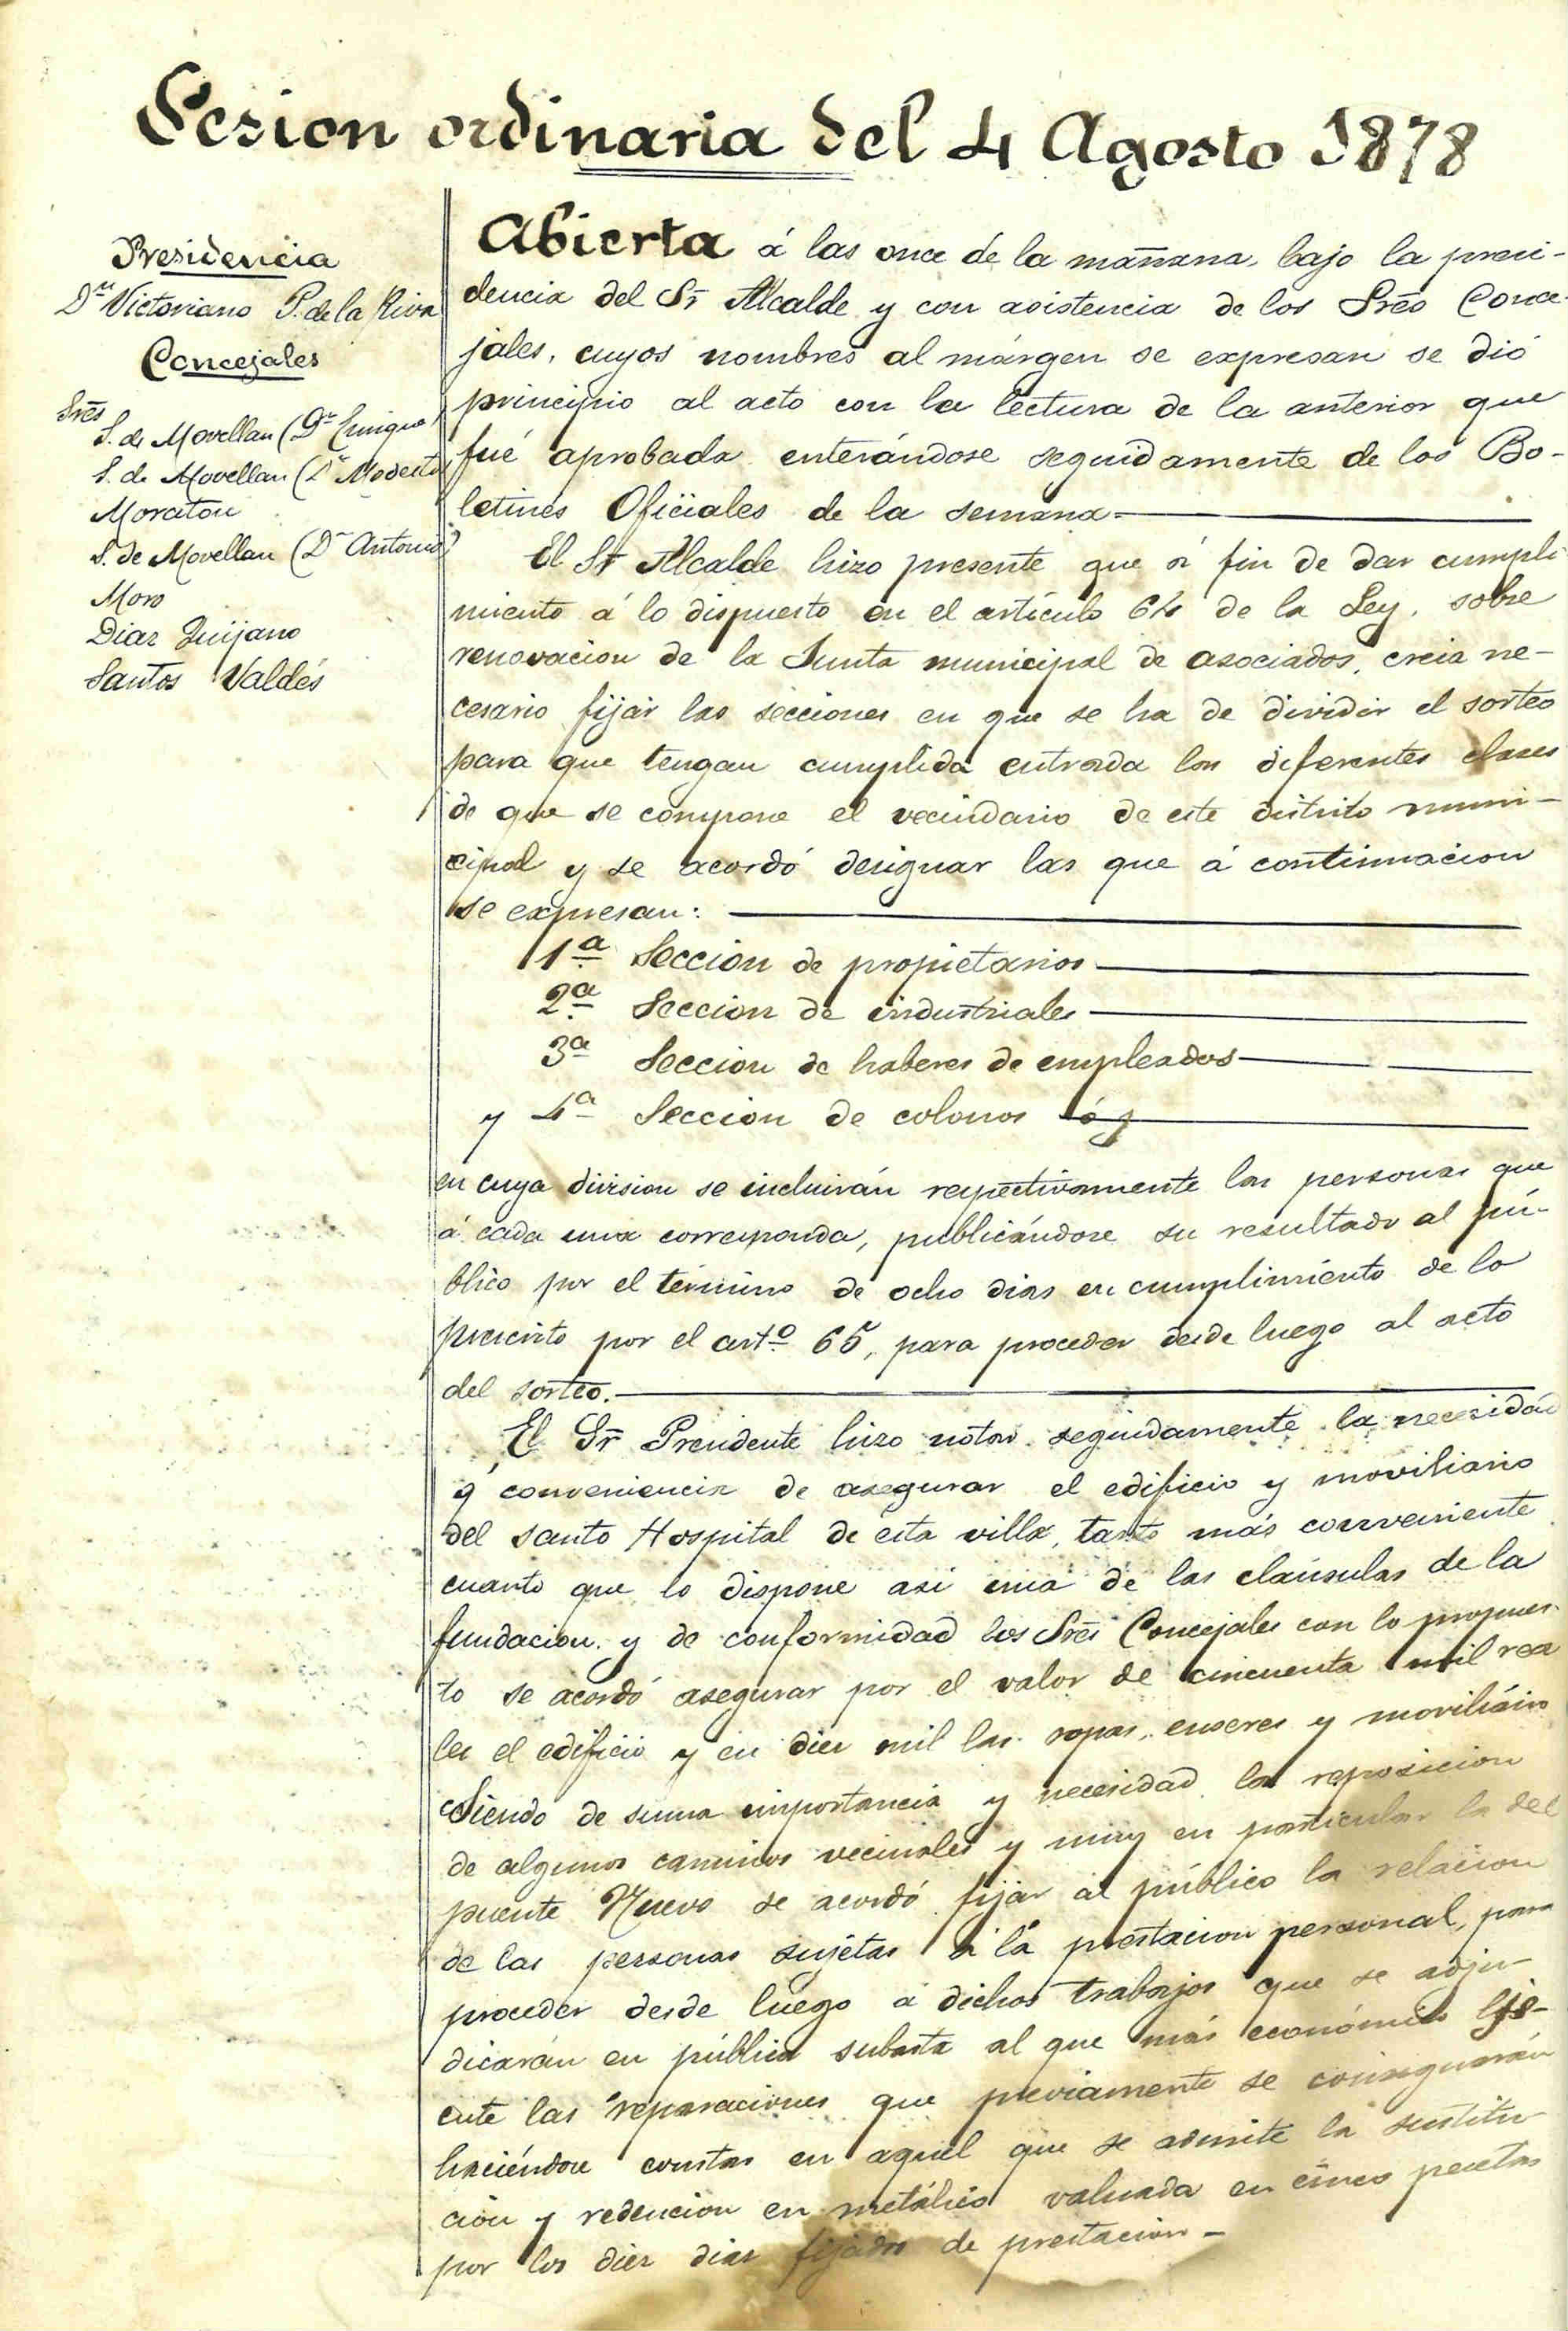 Sesion ordinaria del 4 Agosto 1878
Presidencia
Dn Victoriano P. de la Riva
Concejales
Sres
S. de Movellan (Dn Enrique)
S. de Movellan (Dn Modesto)
Moraton
S. de Movellan (Dn Antonio)
Moro
Diaz Quijano
Santos Valdés
Abierta á las once de la mañana, bajo la presi-
dencia del Sr Alcalde y con asistencia de los Sres Conce-
jales, cuyos nombres al márgen se expresan se dió
principio al acto con la lectura de la anterior que
fué aprobada enterándose seguidamente de los Bo-
letines Oficiales de la semana.
El Sr Alcalde hizo presente que á fin de dar cumpli-
miento á lo dispuesto en el artículo 64 de la Ley, sobre
renovacion de la Junta municipal de asociados, creia ne-
cesario fijar las secciones en que se ha de dividir el sorteo
para que tengan cumplida entrada las diferentes clases
de que se compone el vecindario de este distrito muni-
cipal y se acordó designar las que á continuacion
se expresan:
1ª Seccion de propietarios
2ª Seccion de industriales
3ª Seccion de haberes de empleados
y 4ª Seccion de colonos
en cuya division se incluirán respectivamente las personas que
á cada una corresponda, publicándose su resultado al pú-
blico por el término de ocho dias en cumplimiento de lo
prescrito por el artº 65, para proceder desde luego al acto
del sorteo.
El Sr Presidente hizo notar seguidamente la necesidad
y conveniencia de asegurar el edificio y moviliario
del santo Hospital de esta villa, tanto más conveniente
cuanto que lo dispone asi una de las claúsulas de la
fundacion. y de conformidad los Sres Concejales con lo propues-
to se acordó asegurar por el valor de cincuenta mil rea
les el edificio y en diez mil las ropas, enseres y moviliário
Siendo de suma importancia y necesidad la reposicion
de algunos caminos vecinales y muy en particular la del
puente Nuevo se acordó fijar al público la relacion
de las personas sujetas á la prestacion personal, para
proceder desde luego á dichos trabajos que se adju-
dicarán en pública subasta al que más económico eje-
cute las reparaciones que previamente se consignarán
haciéndose constar en aquel que se admite la sustitu-
cion y redencion en metálico valuada en cinco pesetas
por los diez dias fijados de prestacion -